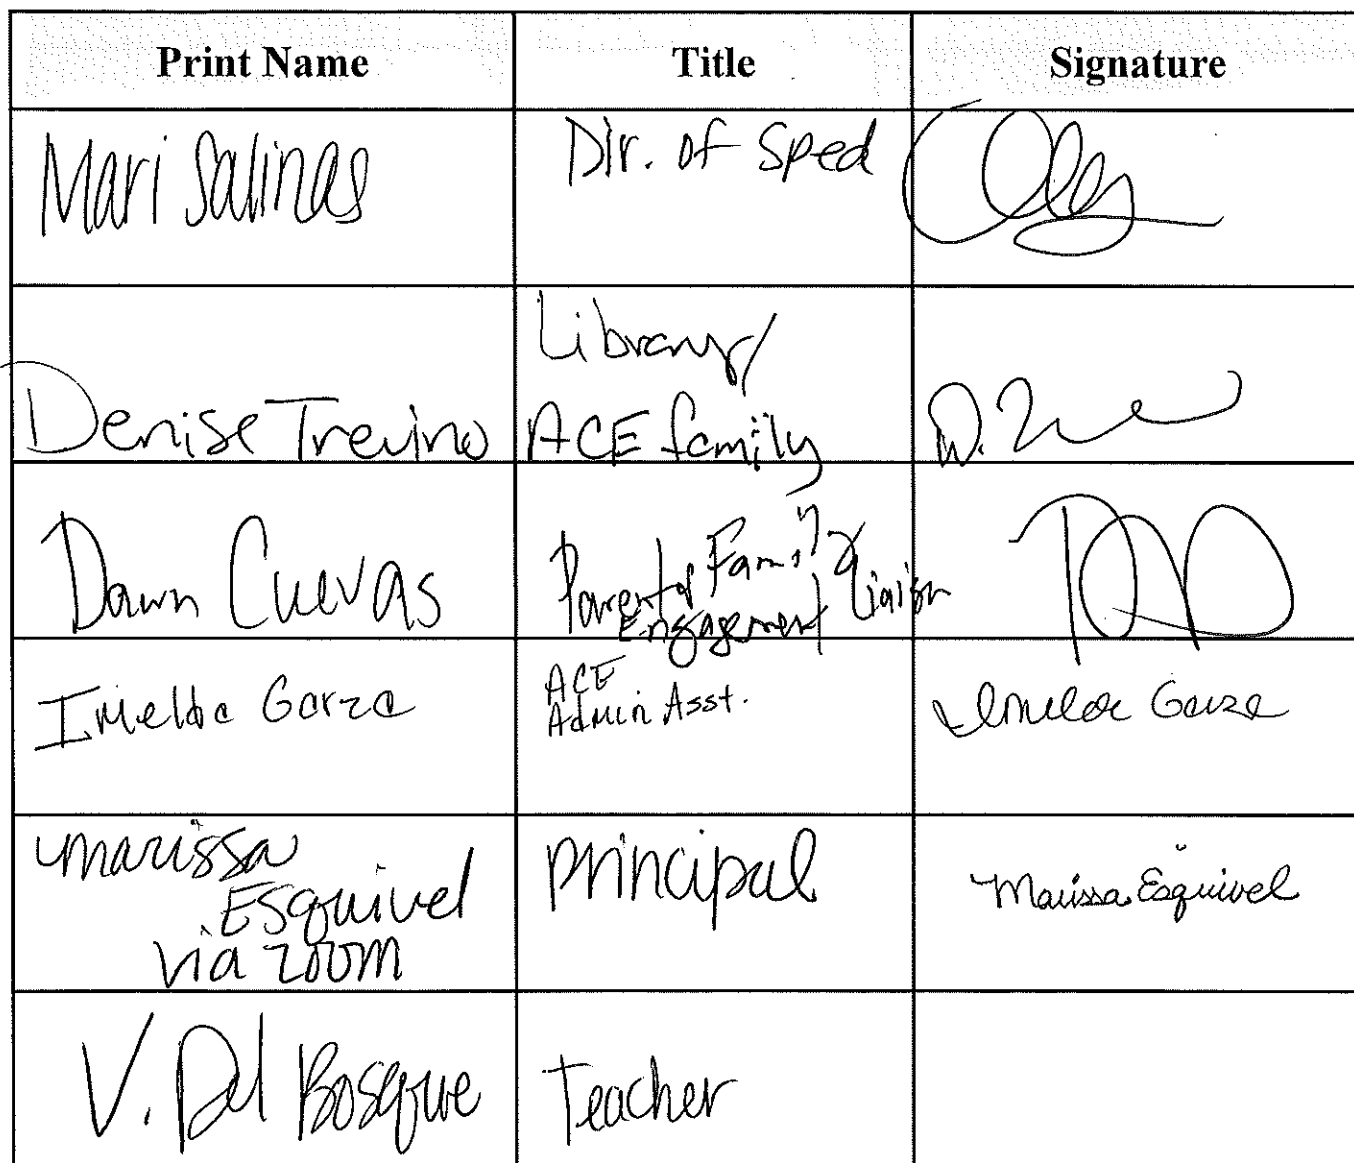 Print Name Title Signature
Mari Salinas Dir. of Sped
Denise Trevino Library/
ACE family D.
Dawn Cuevas Parent & Family
Engagement Liaison
Imelda Garza ACE
Admin Asst. Imelda Garza
Marissa
Esquivel
via zoom principal Marissa Esquivel
V. Del Bosque Teacher